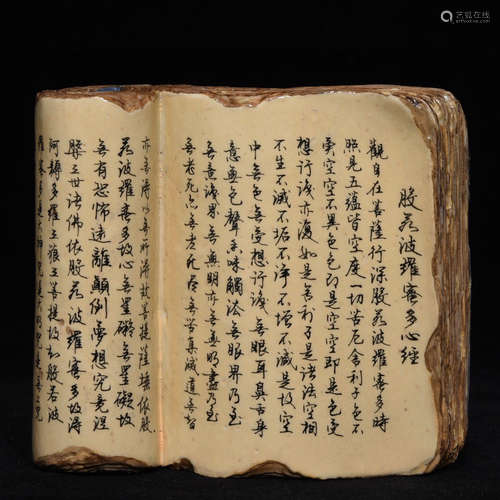 艺狐在线
artfoxlive.com
般若波羅蜜多心經
觀自在菩薩行深般若波羅蜜多時
照見五蘊皆空度一切苦厄舍利子色不
異空空不異色色即是空空即是色受
想行識亦復如是舍利子是諸法空相
不生不滅不垢不淨不增不減是故空
中無色無受想行識無眼耳鼻舌身
意無色聲香味觸法無眼界乃至
無意識界無無明亦無無明盡乃至
無老死亦無老死盡無苦集滅道無智
亦無得以無所得故菩提薩埵依般
若波羅蜜多故心無罣礙無罣礙故
無有恐怖遠離顛倒夢想究竟涅
槃三世諸佛依般若波羅蜜多故得
阿耨多羅三藐三菩提故知般若波
羅蜜多是大神咒是大明咒是無上咒